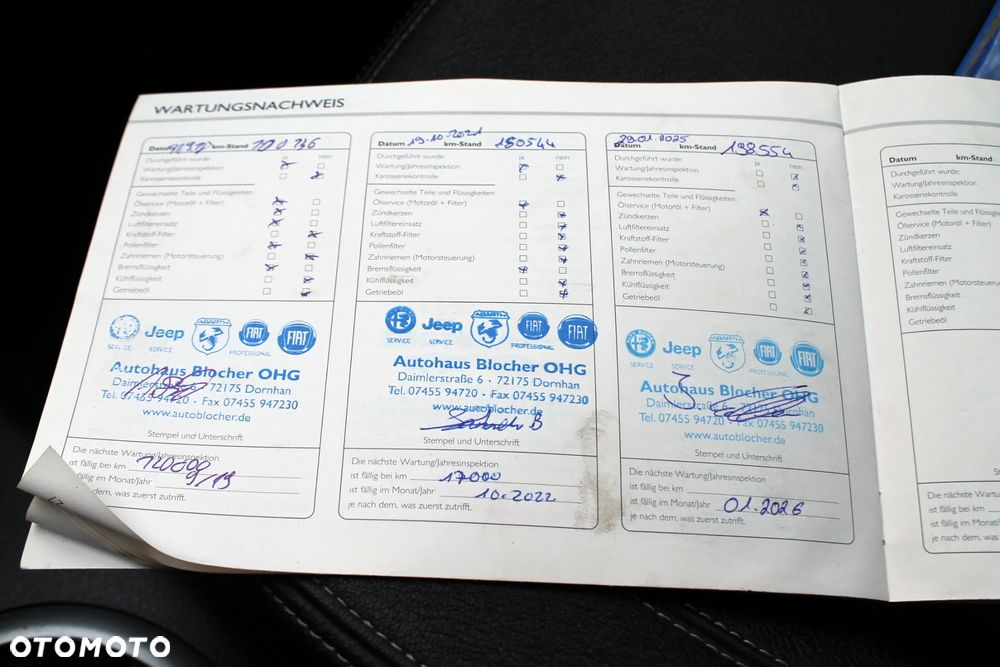 WARTUNGSNACHWEIS
Datum km-Stand
Durchgeführt wurde: ja nein
Wartung/Jahresinspektion
Karosseriekontrolle
Gewechselte Teile und Flüssigkeiten:
Ölservice (Motoröl + Filter)
Zündkerzen
Luftfiltereinsatz
Kraftstoff-Filter
Pollenfilter
Zahnriemen (Motorsteuerung)
Bremsflüssigkeit
Kühlflüssigkeit
Getriebeöl
SERVICE
Jeep
SERVICE
ABARTH
FIAT
PROFESSIONAL
FIAT
Autohaus Blocher OHG
Daimlerstraße 6 - 72175 Dornhan
Tel. 07455 94720 - Fax 07455 947230
www.autoblocher.de
Stempel und Unterschrift
Die nächste Wartung/Jahresinspektion
ist fällig bei km
ist fällig im Monat/Jahr 9/19
je nach dem, was zuerst zutrifft.
Datum 19-10-2021 km-Stand 150544
Durchgeführt wurde: ja nein
Wartung/Jahresinspektion
Karosseriekontrolle
Gewechselte Teile und Flüssigkeiten:
Ölservice (Motoröl + Filter)
Zündkerzen
Luftfiltereinsatz
Kraftstoff-Filter
Pollenfilter
Zahnriemen (Motorsteuerung)
Bremsflüssigkeit
Kühlflüssigkeit
Getriebeöl
SERVICE
Jeep
SERVICE
ABARTH
FIAT
PROFESSIONAL
FIAT
Autohaus Blocher OHG
Daimlerstraße 6 - 72175 Dornhan
Tel. 07455 94720 - Fax 07455 947230
www.autoblocher.de
Stempel und Unterschrift
Die nächste Wartung/Jahresinspektion
ist fällig bei km 17000
ist fällig im Monat/Jahr 10.2022
je nach dem, was zuerst zutrifft.
Datum 29.01.2025 km-Stand 198554
Durchgeführt wurde: ja nein
Wartung/Jahresinspektion
Karosseriekontrolle
Gewechselte Teile und Flüssigkeiten:
Ölservice (Motoröl + Filter)
Zündkerzen
Luftfiltereinsatz
Kraftstoff-Filter
Pollenfilter
Zahnriemen (Motorsteuerung)
Bremsflüssigkeit
Kühlflüssigkeit
Getriebeöl
SERVICE
Jeep
SERVICE
ABARTH
FIAT
PROFESSIONAL
FIAT
Autohaus Blocher OHG
Daimlerstraße 6 - 72175 Dornhan
Tel. 07455 94720 - Fax 07455 947230
www.autoblocher.de
Stempel und Unterschrift
Die nächste Wartung/Jahresinspektion
ist fällig bei km
ist fällig im Monat/Jahr 01.2026
je nach dem, was zuerst zutrifft.
Datum km-Stand
Durchgeführt wurde:
Wartung/Jahresinspektion
Karosseriekontrolle
Gewechselte Teile und
Ölservice (Motoröl + Filter)
Zündkerzen
Luftfiltereinsatz
Kraftstoff-Filter
Pollenfilter
Zahnriemen (Motorsteueru
Bremsflüssigkeit
Kühlflüssigkeit
Getriebeöl
Die nächste Wartung
ist fällig bei km
ist fällig im Monat/Jahr
je nach dem, was
OTOMOTO